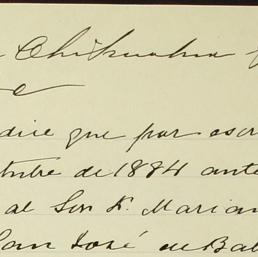 Chihuahua
dice que por escri
tubre de 1884 ante
al Sor D. Marian
San José de Bab